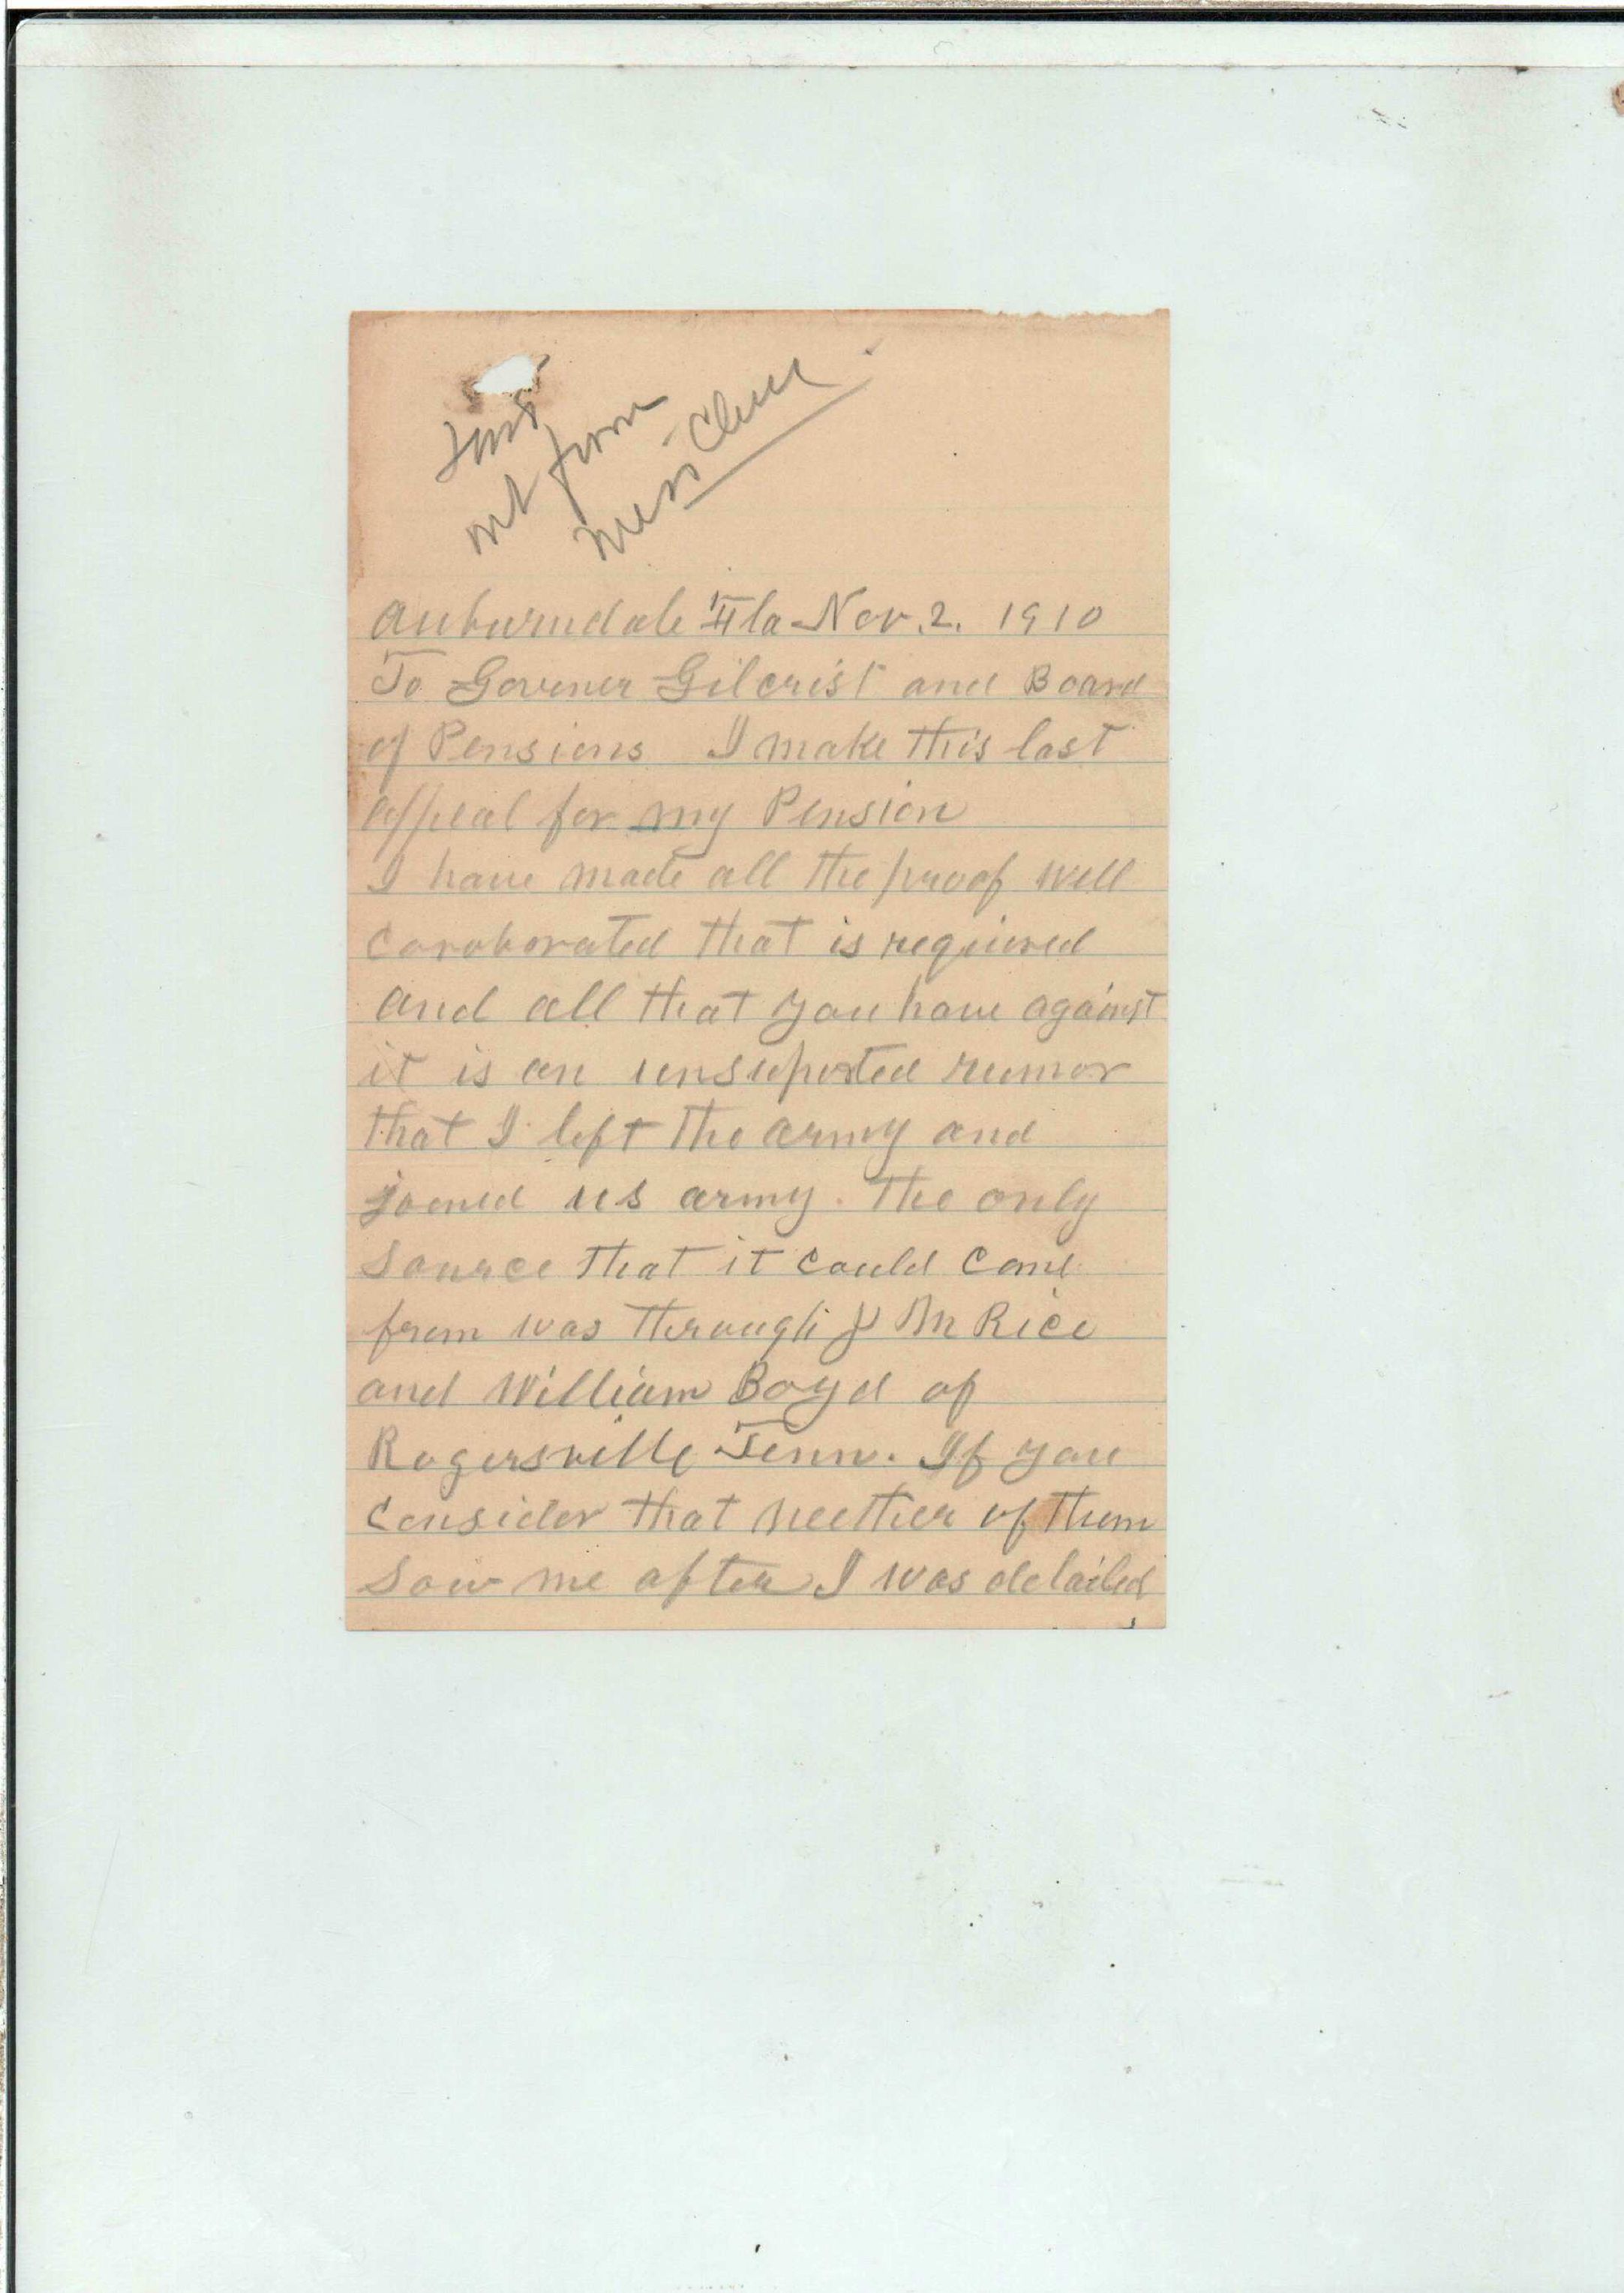 not from
Auburndale Fla Nov. 2. 1910
To Govener Gilcrist and Board
of Pensions I make this last
appeal for my Pension
I have made all the proof well
Coroborated that is requiered
and all that you have against
it is an unsuported rumor
that I left the army and
joened us army. The only
Source that it Could Come
from was through J M Rice
and William Boyd of
Rogersville Tenn. If you
Consider that neether of them
Saw me after I was detailed